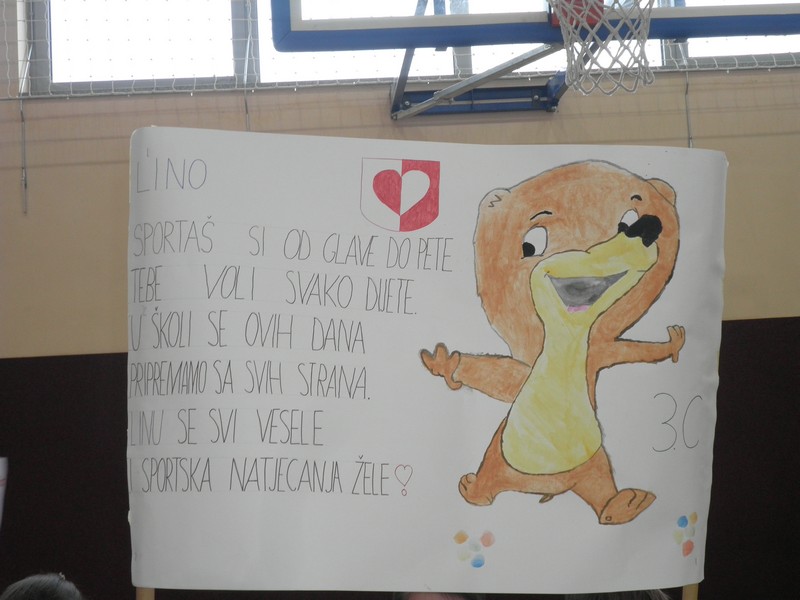 LINO
SPORTAŠ SI OD GLAVE DO PETE
TEBE VOLI SVAKO DIJETE.
U ŠKOLI SE OVIH DANA
PRIPREMAMO SA SVIH STRANA.
LINU SE SVI VESELE
I SPORTSKA NATJECANJA ŽELE
3.C